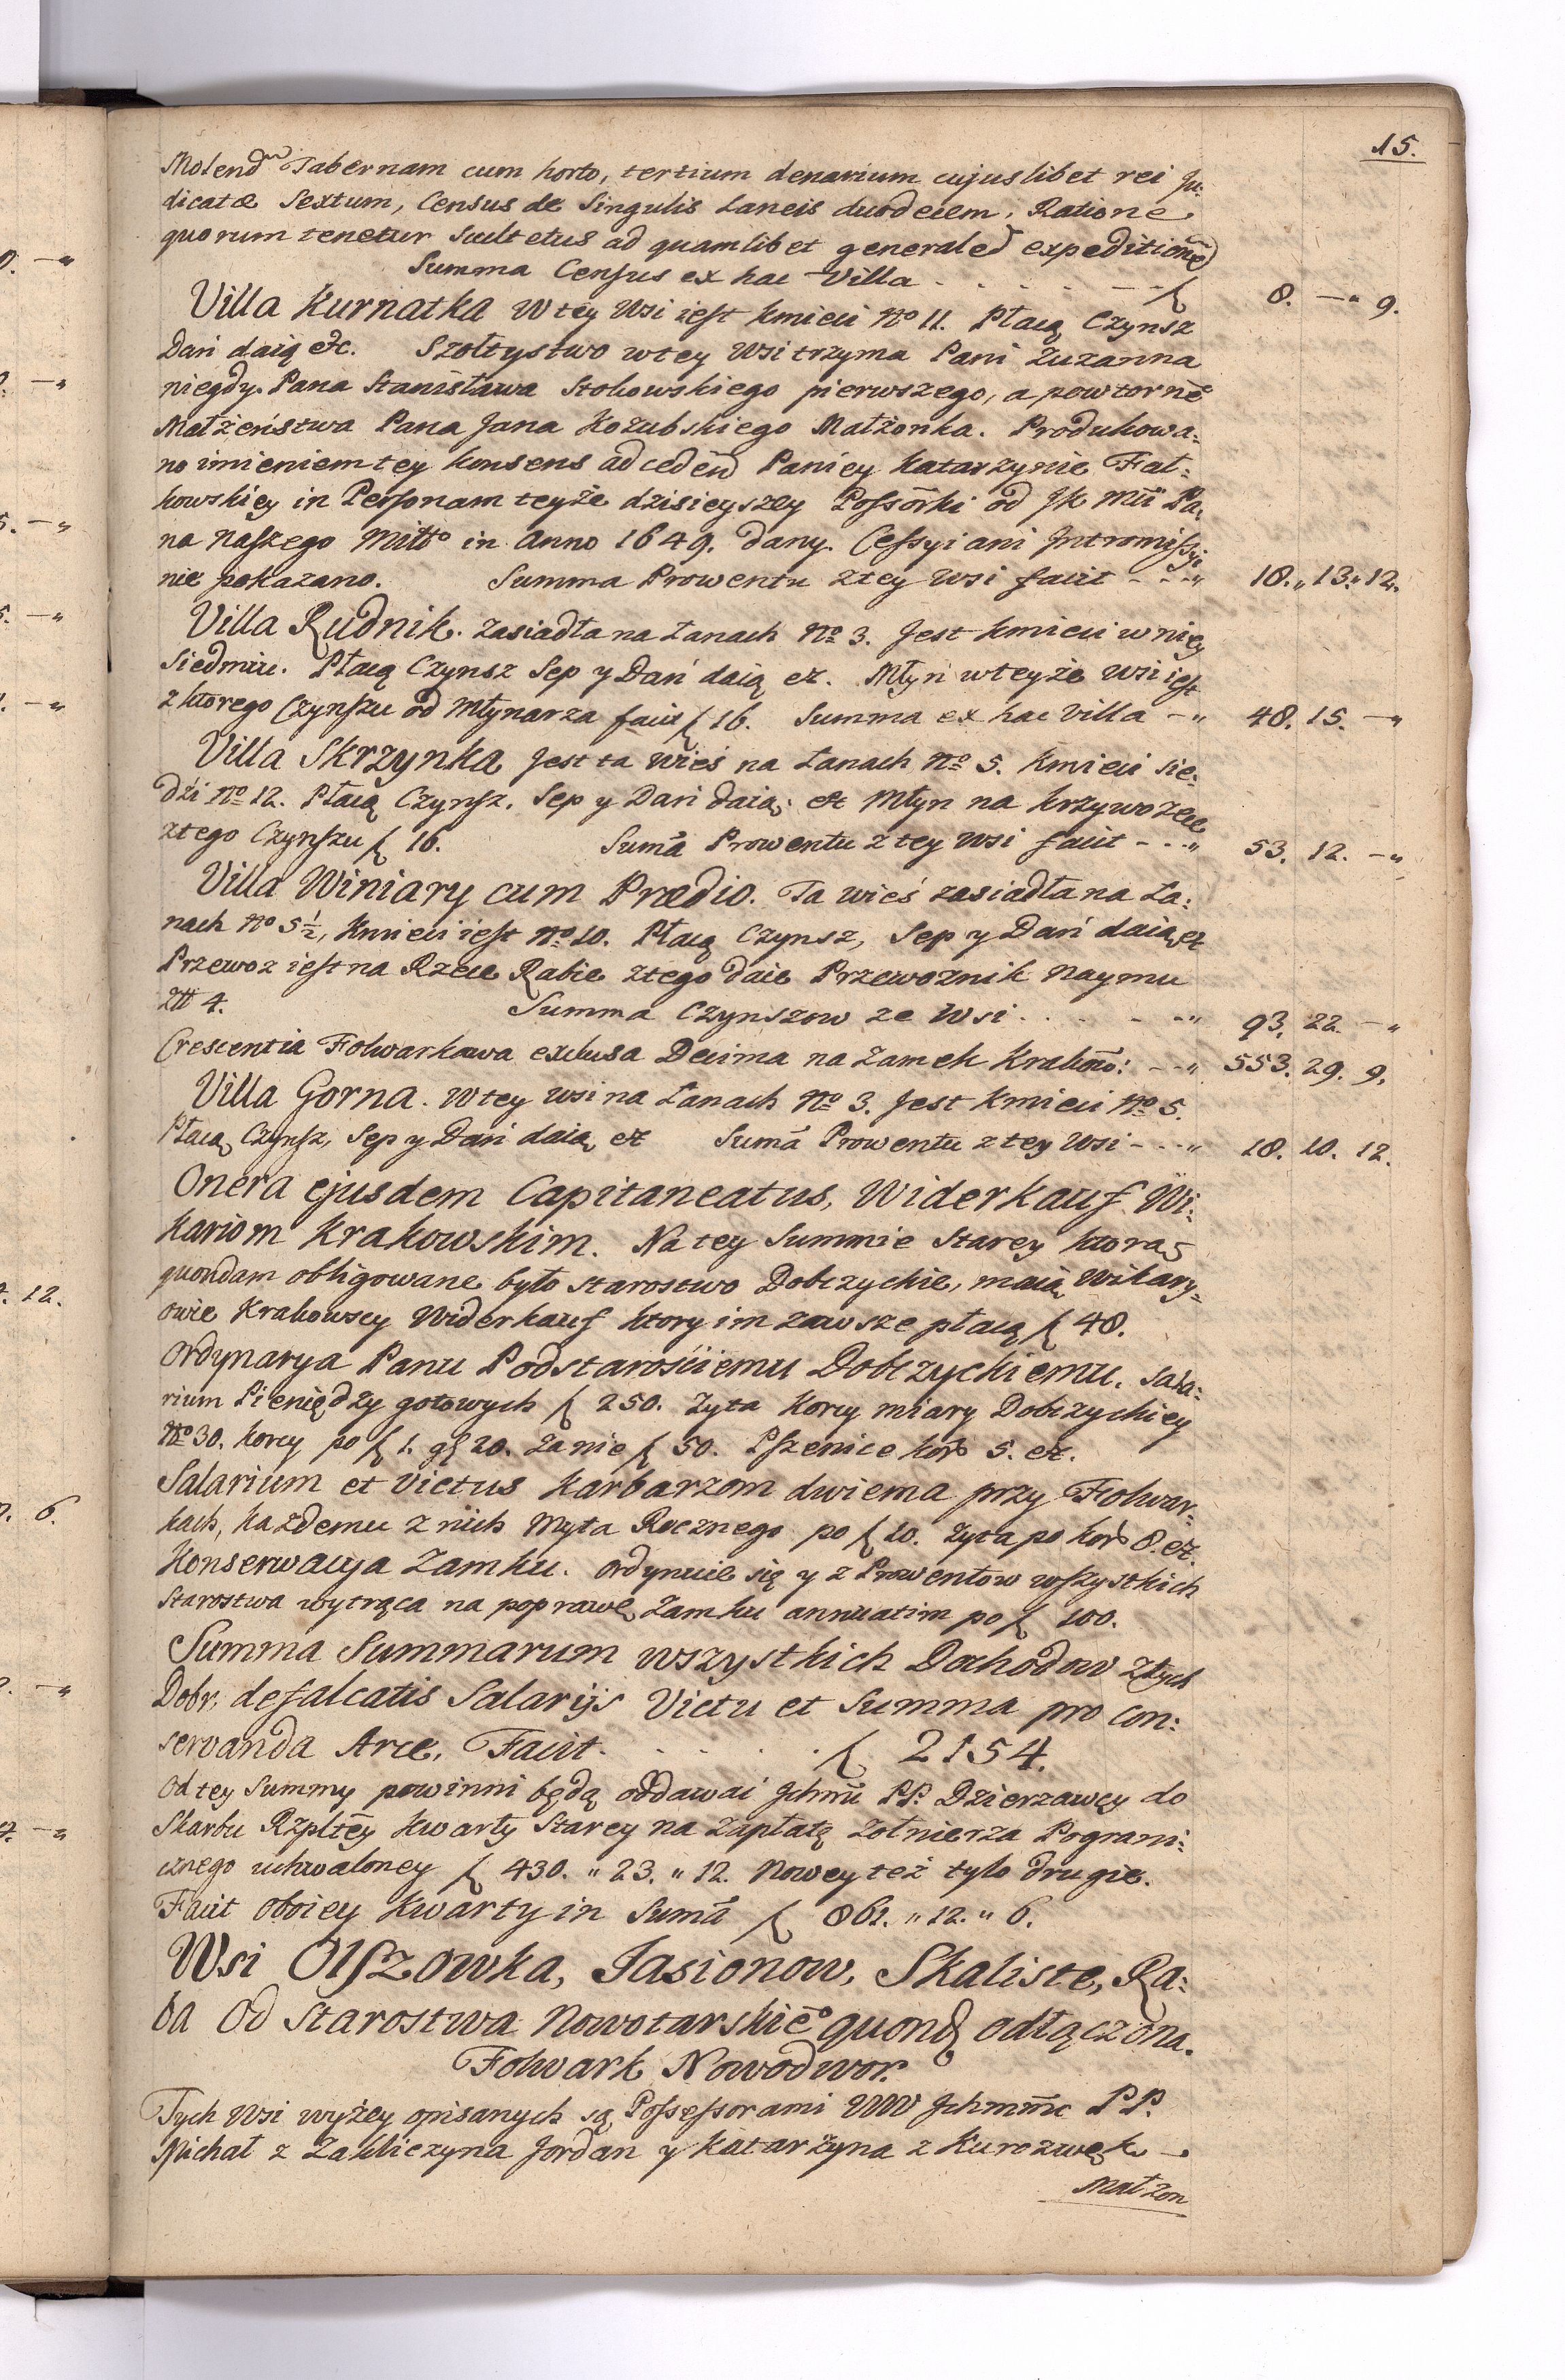 15.
Molendm Tabernam cum horto, tertium denarium cujuslibet rei Ju:
dicatæ Sextum, Census de Singulis Laneis duodecem, Ratione
quorum tenetur Scultetus ad quamlibet generaled expeditionē
Summa Census ex hac Villa . . . . . — f 8. —" 9.
Villa Kurnatka W tey Wsi iest kmieci No 11. Płacą Czynsz
Dań daią etc. Szołtystwo w tey Wsi trzyma Pani Zuzanna
niegdy Pana Stanisława Stokowskiego pierwszego, a powtornē
Małżeństwa Pana Jana Kozubskiego Małżonka. Produkowa:
no imieniem tey konsens ad cedēd Paniey Katarzynie Fał:
kowskiey in Personam teyże dzisieyszey Possōrki od Jk Mci Pa:
na Naszego Miłło in Anno 1649. dany. Cessyi ani Intromissyi
nie pokazano. Summa Prowentu z tey Wsi facit - - -" 18." 13." 12.
Villa Rudnik. zasiadła na Łanach No 3. Jest kmieci w niey
Siedmiu. Płacą Czynsz Sep y Dań daią et. Młyn w teyże Wsi iest
z ktorego Czynszu od Młynarza facit f 16. Summa ex hac Villa —" 48. 15. —"
Villa Skrzynka Jest ta Wieś na Łanach No 5. Kmieci sie:
dźi No 12. Płacą Czynsz, Sep y Dań daią, et Młyn na krzyworzece
z tego Czynszu f 16. Sumā Prowentu z tey Wsi facit - - -" 53. 12. —"
Villa Winiary cum Prædio. Ta wieś zasiadła na Ła:
nach No 5½, Kmieci iest No 10. Płacą Czynsz, Sep y Dań daią et
Przewoz iest na Rzece Rabie z tego daie Przewoznik Naymu
Złł 4. Summa Czynszow ze Wsi . . . . - -" 93. 22. —"
Crescentia Folwarkowa exclusa Decima na Zamek Krakow: - -" 553. 29. 9.
Villa Gorna. W tey wsi na Łanach No 3. Jest kmieci No 5.
Płacą Czynsz, Sep y Dań daią et Sumā Prowentu z tey Wsi - - -" 18. 10. 12.
Onera ejusdem Capitaneatus, Widerkauf Wi:
kariom Krakowskim. Na tey Summie Starey ktorą
quondam obligowane było Starostwo Dobczyckie, maią Wikary:
owie Krakowscy Widerkauf ktory im zawsze płacą f 48.
Ordynarya Panu Podstarościemu Dobczyckiemu. Sala:
rium Pieniędzy gotowych f 250. Zyta korcy miary Dobczyckiey
No 30. korcy po f 1. gr 20. Za nie f 50. Pszenice kor 5. et.
Salarium et Victus Karbarzom dwiema przy Folwar:
kach, każdemu z nich Myta Rocznego po f 10. Zyta po kor 8. et.
Konserwacya Zamku. Ordynuie się y z Prowentow wszystkich
Starostwa wytrąca na poprawę Zamku annuatim po f 100.
Summa Summarum wszystkich Dochodow z tych
Dobr, defalcatis Salarijs Victu et Summa pro con:
servanda Arce, Facit . . . . . f 2154.
Od tey Summy powinni będą oddawai Jchmć PP. Dzierzawcy do
Skarbu Rzpltēy Kwarty Starey na zapłatę żołnierza Pograni:
cznego uchwaloney f 430." 23." 12. Nowey też tylo drugie.
Facit oboiey Kwarty in Sumā f 861." 12." 6.
Wsi Olszowka, Jasionow, Skaliste, Ra:
ba Od Starostwa Nowotarskiēo quond odłączona.
Folwark Nowodwor.
Tych Wsi wyżey opisanych są Possessorami WW Jchmmć PP.
Michał z Zakliczyna Jordan y Katarzyna z Kurozwęk —
Małzon